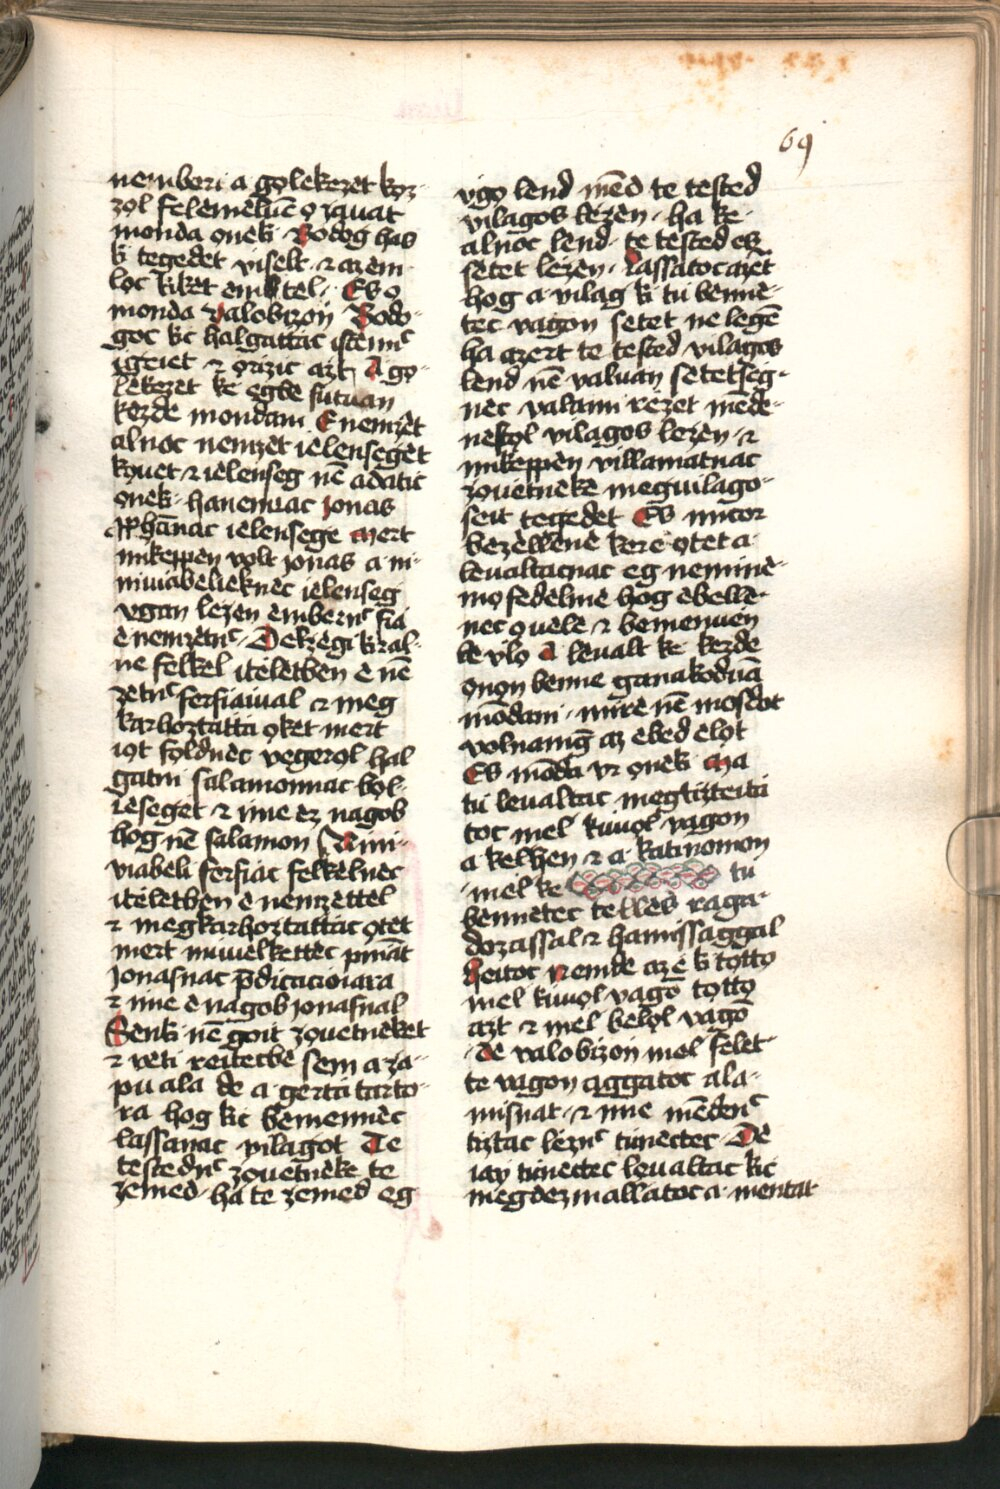 69
nemberi a gọlekezet kọz-
zọl felemeluē ọ zauat
monda ọnek · Bodog has
k̇ tegedet viselt · ⁊ azem-
lọc k̇ket emtel · Es ọ
monda valobizoṅ Bodo-
goc kic halgattac istenn̄c
igeiet ⁊ ọrizic azt A gọ-
lekezet kė̇ egbė̇ futuan
kezdė mondani Enemzėt
alnoc nemzet ielenseget
kọuet ⁊ ielenseg nē adatic
ọnek · hanemac jonas
ꝓphānac ielensege mert
mikeppen volt jonas a ni-
niuiabelieknėc ielenseg
vgan lezen ėmbern̄c fia
ė nemzetn̄c · Delzegi kiral-
nė felkel iteletben ė nē
zetn̄c ferfiaiual ⁊ meg
karhoztatta ọket mert
iọt fọldnėc vegerọl hal
gatni salamonnac bọl-
ieseget ⁊ ime ez nagob
hog nē salamon Nini-
viabeli ferfiac felkelnėc
iteletben ė nemzėttėl
⁊ megkarhoztattac ọtėt
mert miuėlkettėc pināt
jonasnac p̄dicacioiara
⁊ ime ė nagob jonasnal
Senk̇ nē goit zọuetnėket
⁊ veti reitecbė sem a za-
pu ala dė a gerta tarto-
ra hog kic bėmennėc
lassanac vilagot Te
testedn̄c zọuetnėke te
zemed · ha te zemed eg
vgọ lend mēd te tested
vilagos lezen · ha kė-
alnoc lend · te tested es
sėtet lezen · Lassatoc azėt
hog a vilag k̇ tu bennė-
tec vagon sėtet ne legē
ha azert te tested vilagos
lend nē valuan sėtetseg-
nėc valami rezet mēdė-
nestọl vilagos lezen · ⁊
mikeppen villamatnac
zọuetnėke meguilago-
seit tegedet Es micor
bezellenė kerė ọtet a
leualtacnac eg neminė-
mọ fedelmė hog ėbellė-
nėc ọuelė ⁊ bėmenuen
lė vlọ A leualt kė kezdė
ọnọn bennė ganakoduā
mōdani · mirė nē mosdot
volnamḡ az ebed elọt
Es mōda vr ọnek̇ Ma
tu leualtac megtizteita
toc mel kiuọl vagon
a kelhen ⁊ a katinomon
mel kė tu
bennėtec tellės raga-
dozassal ⁊ hamissaggal
heitoc nemdė az ė k̇ tọttọ
mel kiuọl vagō tọttọ
azt ⁊ mel belọl vagō
dė valobizoṅ mel felėt
te vagon aggatoc ala-
misnat · ⁊ ime mēden̄c
tiztac lezn̄c tunectec · De
iay tunectec leualtac kic
megdezmallatoc a mentat